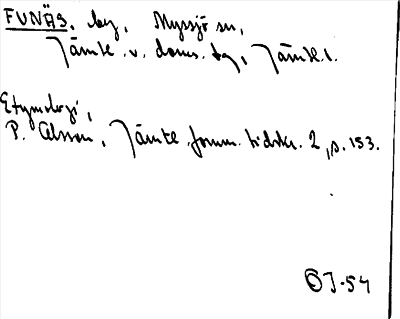 FUNÄS, by, Myssjö sn,
Jämtl. v. doms. tg, Jämtl. l.
Etymologi,
P. Olsson, Jämtl. fornm. tidskr. 2, s. 153.
OJ-54